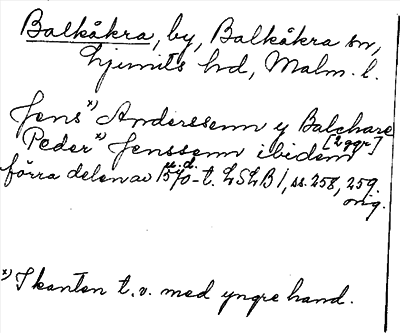 Balkåkra, by, Balkåkra sn,
Ljunits hd, Malm. l.
Jens x) Anderssenn y Balchare
Peder x) Jenssenn ibidem [2 ggr]
u.d.
förra delen av 1570-t. LSLB 1, ss. 258, 259.
orig.
x) I kanten t.v. med yngre hand.